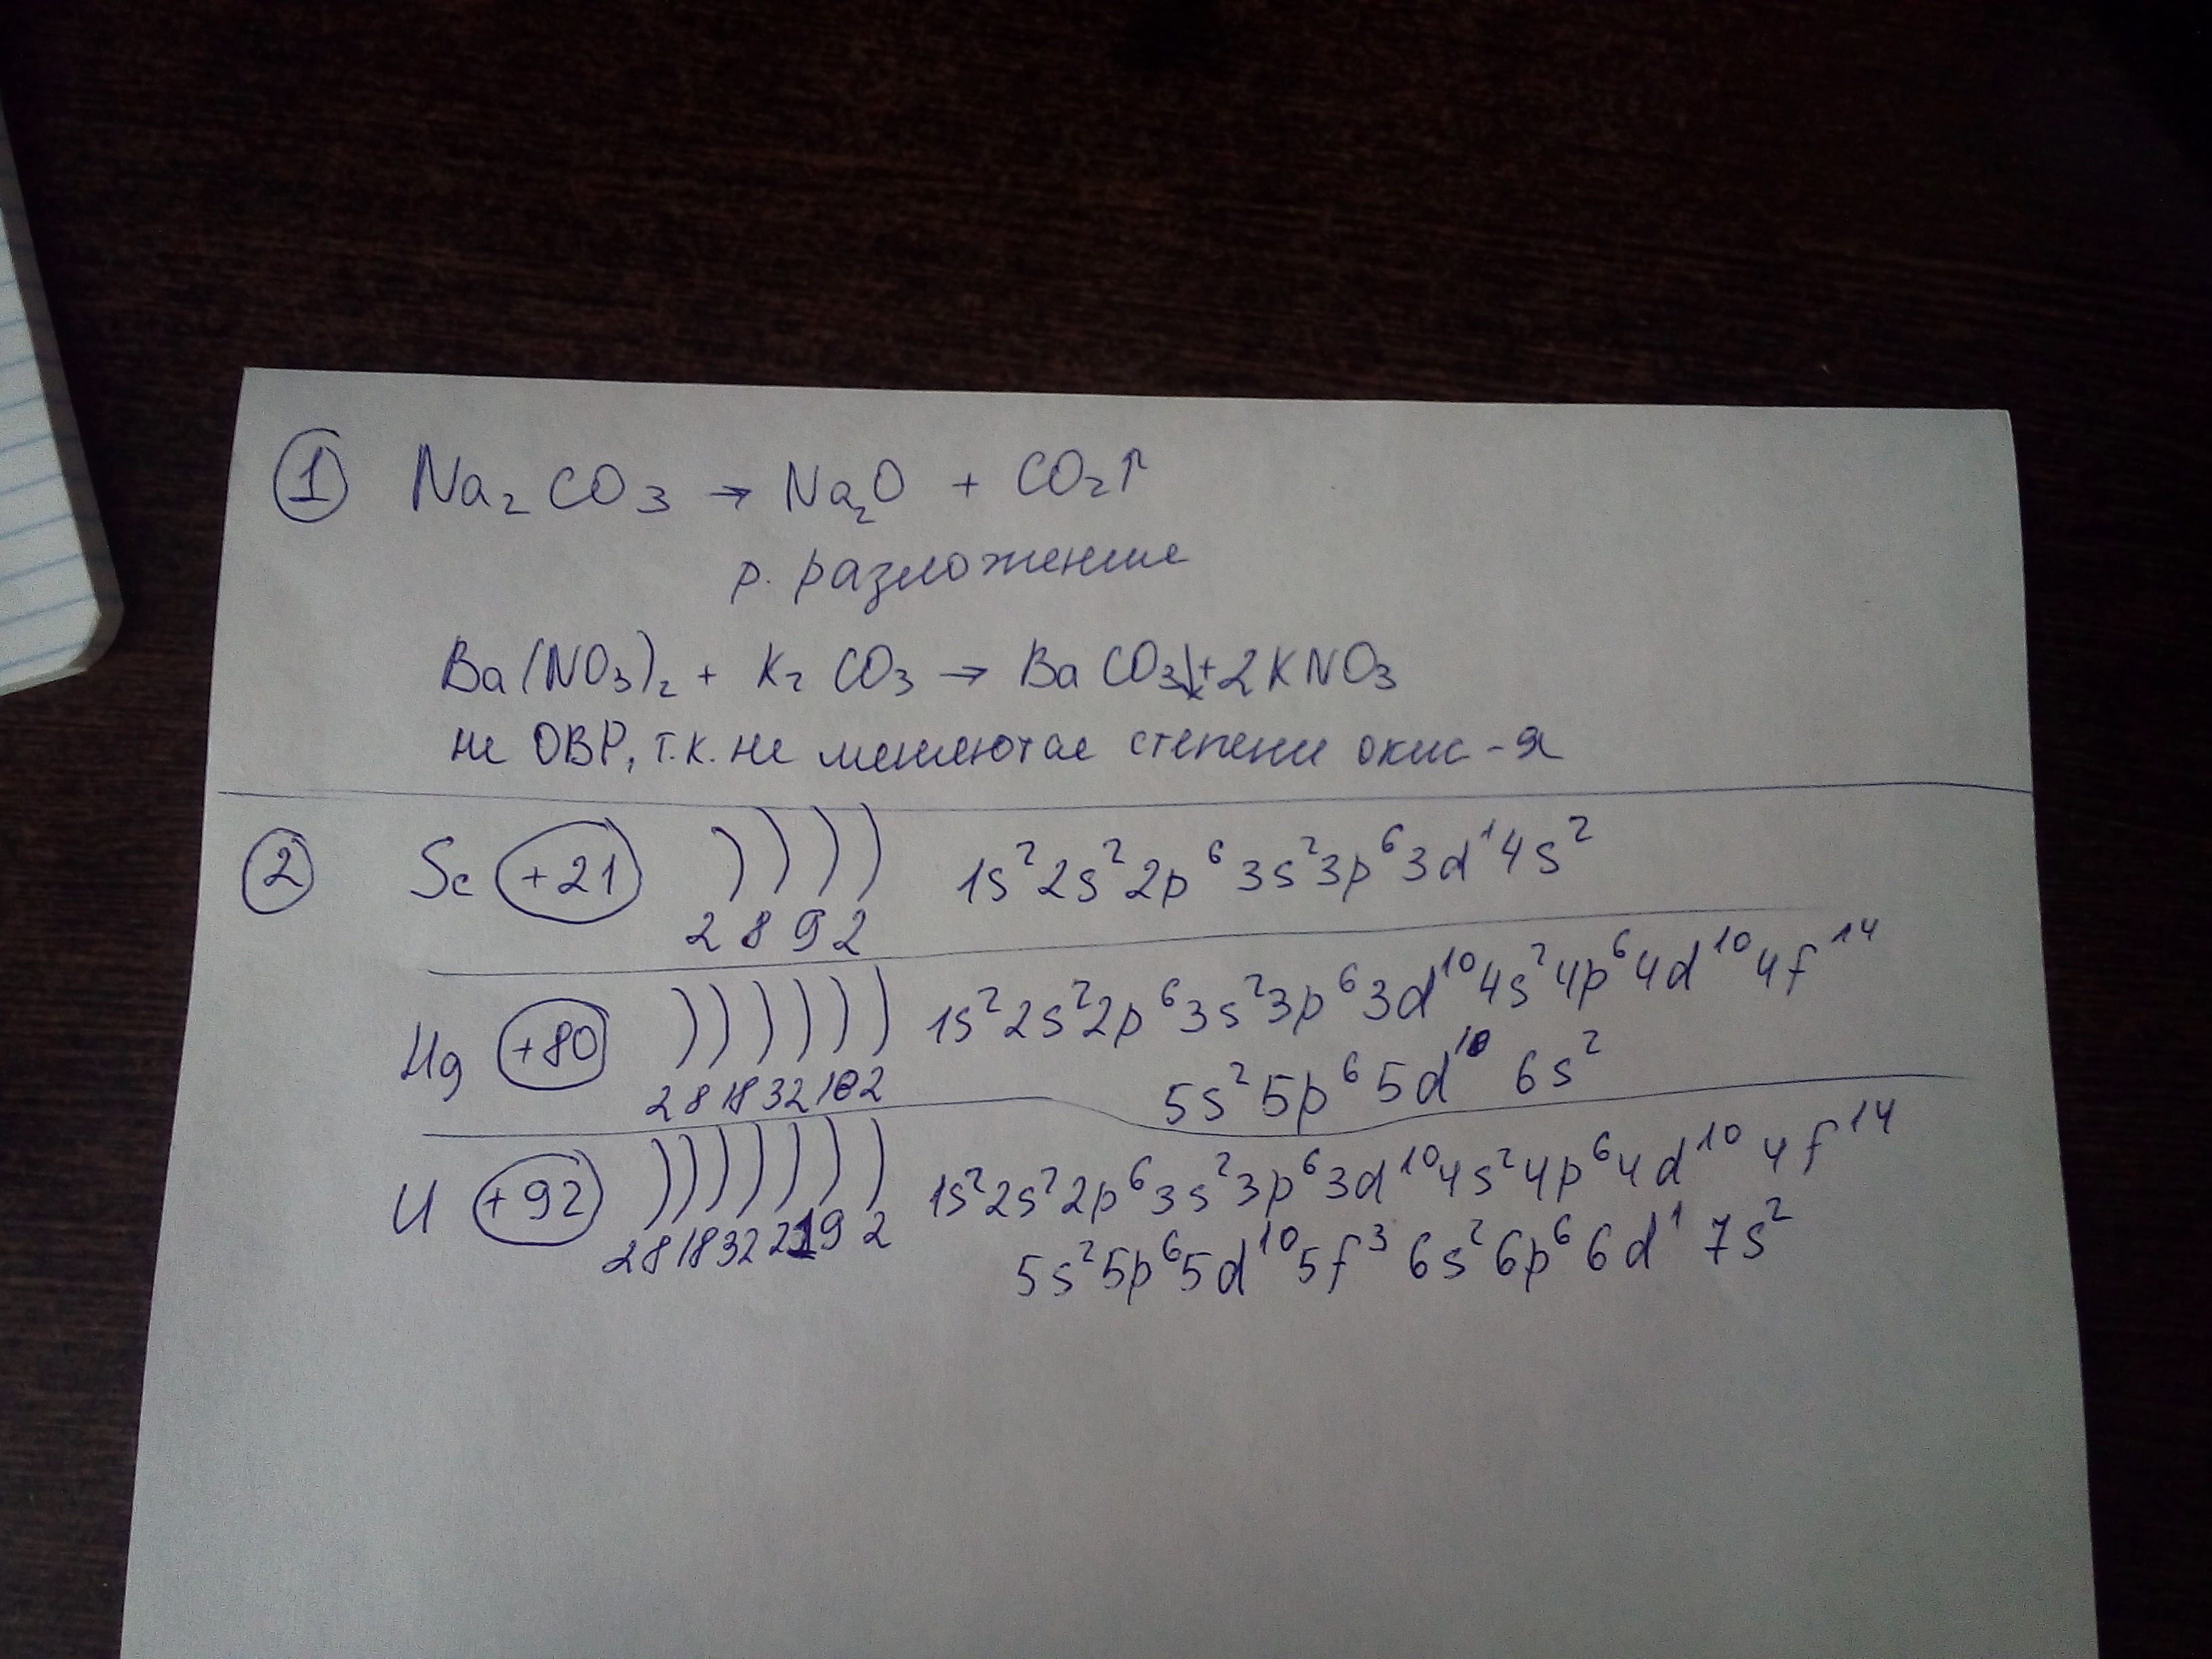 ① Na₂CO₃ → Na₂O + CO₂↑
р. разложения
Ba(NO₃)₂ + K₂CO₃ → BaCO₃↓ + 2KNO₃
не ОВР, т.к. не меняются степени окис-я
② Sc +21 ) ) ) ) 1s²2s²2p⁶3s²3p⁶3d¹4s²
2 8 9 2
Hg +80 ) ) ) ) ) ) 1s²2s²2p⁶3s²3p⁶3d¹⁰4s²4p⁶4d¹⁰4f¹⁴
2 8 18 32 18 2 5s²5p⁶5d¹⁰ 6s²
U +92 ) ) ) ) ) ) ) 1s²2s²2p⁶3s²3p⁶3d¹⁰4s²4p⁶4d¹⁰4f¹⁴
2 8 18 32 21 9 2 5s²5p⁶5d¹⁰5f³6s²6p⁶6d¹ 7s²